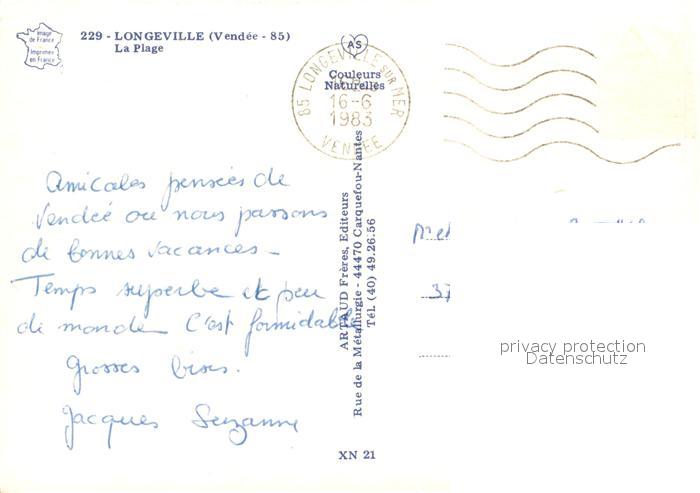 Image
de France
Imprimée
en France
229 - LONGEVILLE (Vendée - 85)
La Plage
AS
Couleurs
Naturelles
85 LONGEVILLE SUR MER
16-6
1983
VENDÉE
Amicales pensées de
Vendée ou nous passons
de bonnes vacances -
Temps superbe et peu
de monde C'est formidable
Grosses bises.
Jacques Suzanne
ARTAUD Frères, Editeurs
Rue de la Métallurgie - 44470 Carquefou-Nantes
Tél. (40) 49.26.56
XN 21
37
privacy protection
Datenschutz